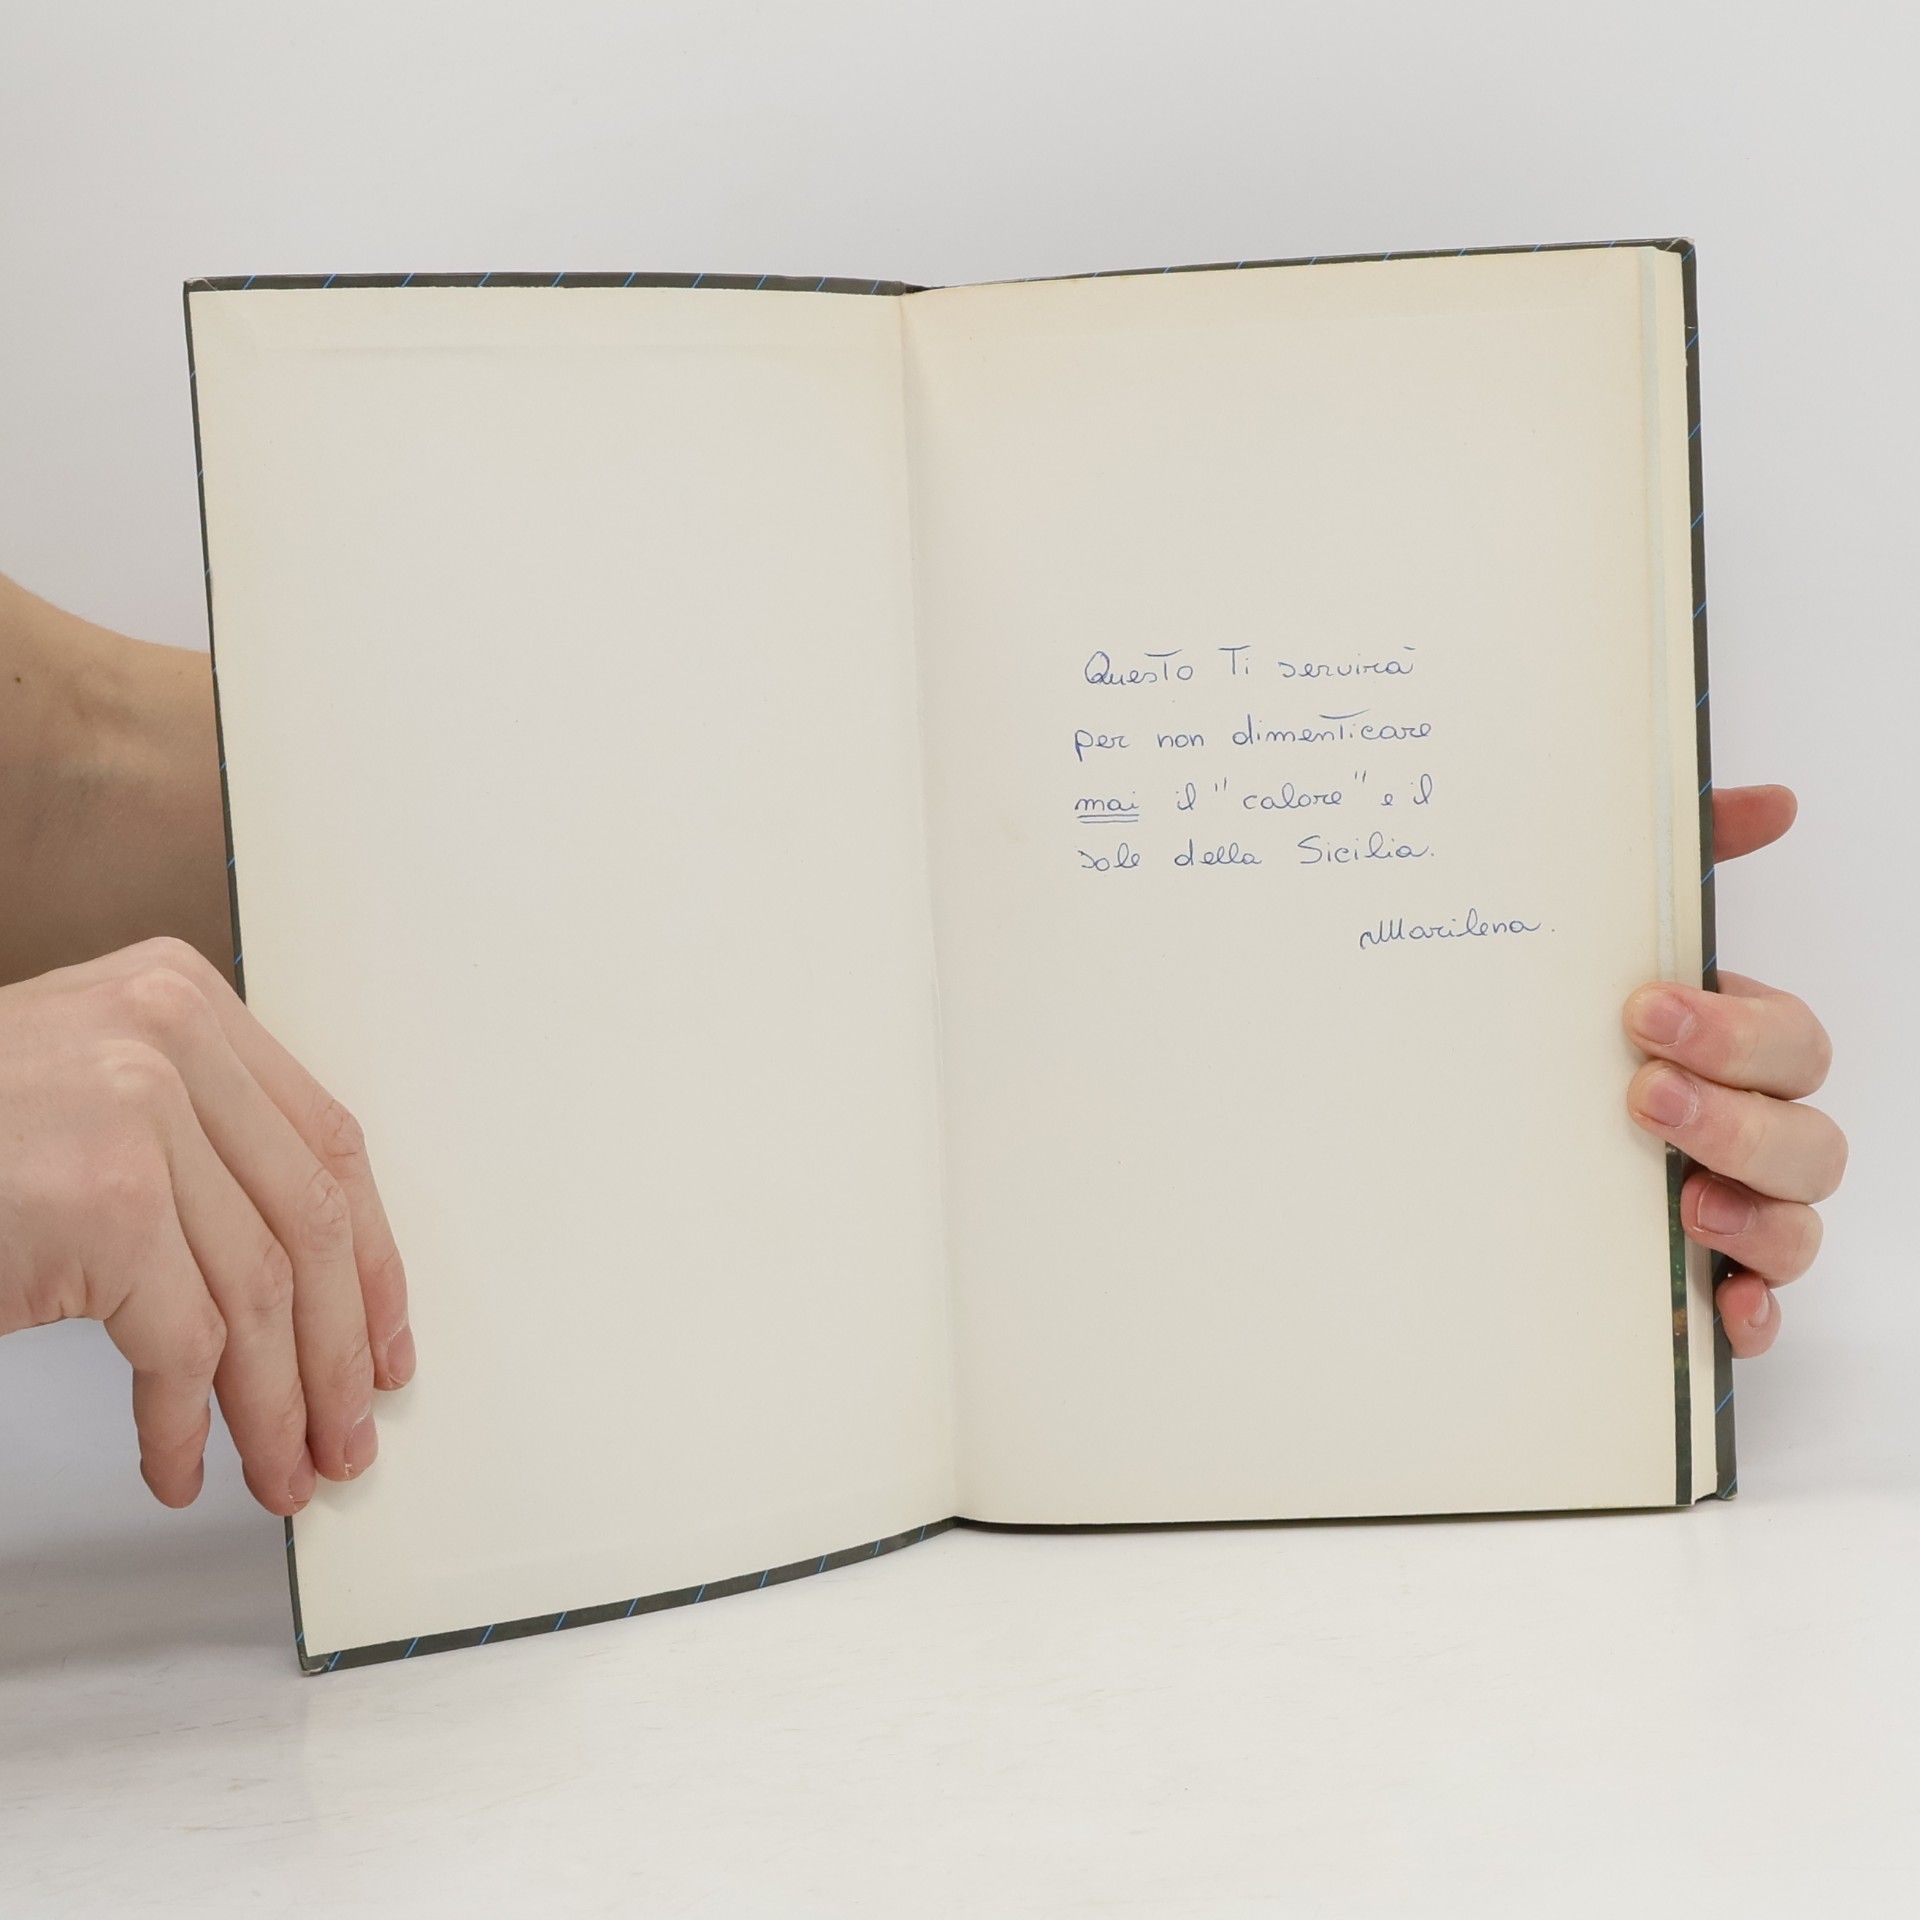 Questo Ti servirà
per non dimenticare
mai il "calore" e il
sole della Sicilia.
Marilena.